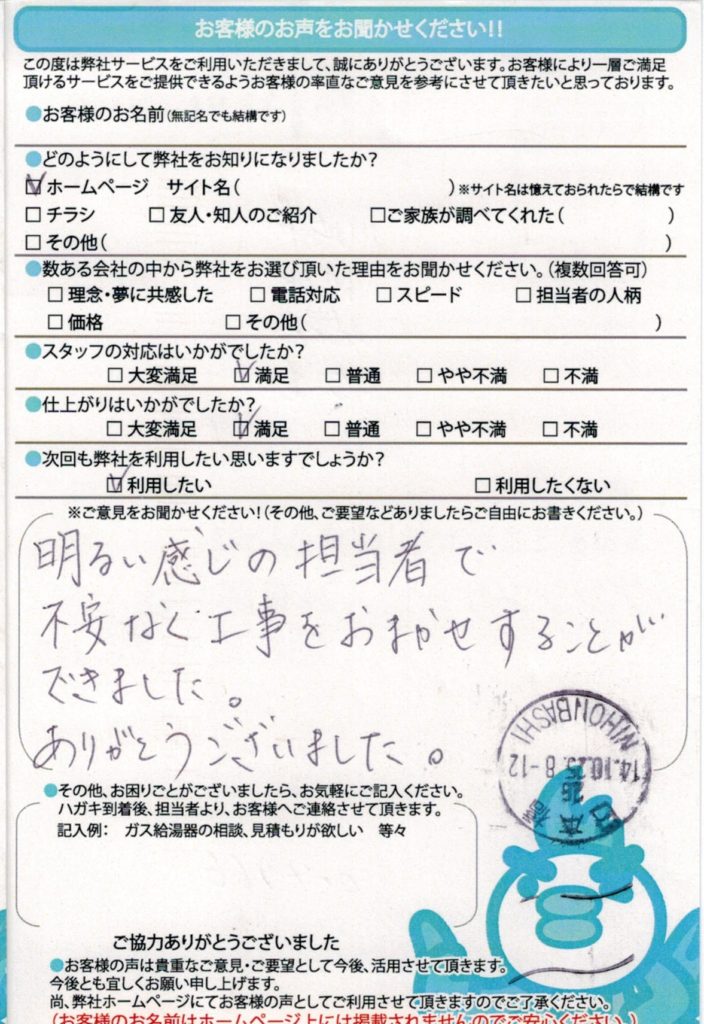 お客様のお声をお聞かせください!!
この度は弊社サービスをご利用いただきまして、誠にありがとうございます。お客様により一層ご満足
頂けるサービスをご提供できるようお客様の率直なご意見を参考にさせて頂きたいと思っております。
●お客様のお名前(無記名でも結構です)
●どのようにして弊社をお知りになりましたか?
☑ホームページ サイト名( )※サイト名は憶えておられたらで結構です
□チラシ □友人・知人のご紹介 □ご家族が調べてくれた( )
□その他( )
●数ある会社の中から弊社をお選び頂いた理由をお聞かせください。(複数回答可)
□理念・夢に共感した □電話対応 □スピード □担当者の人柄
□価格 □その他( )
●スタッフの対応はいかがでしたか?
□大変満足 ☑満足 □普通 □やや不満 □不満
●仕上がりはいかがでしたか?
□大変満足 ☑満足 □普通 □やや不満 □不満
●次回も弊社を利用したい思いますでしょうか?
☑利用したい □利用したくない
※ご意見をお聞かせください!(その他、ご要望などありましたらご自由にお書きください。)
明るい感じの担当者で
不安なく工事をおまかせすることが
できました。
ありがとうございました。
NIHONBASHI
14.10.25 8-12
日本橋
●その他、お困りごとがございましたら、お気軽にご記入ください。
ハガキ到着後、担当者より、お客様へご連絡させて頂きます。
記入例: ガス給湯器の相談、見積もりが欲しい 等々
ご協力ありがとうございました
●お客様の声は貴重なご意見・ご要望として今後、活用させて頂きます。
今後とも宜しくお願い申し上げます。
尚、弊社ホームページにてお客様の声としてご利用させて頂きますのでご了承ください。
(お客様のお名前はホームページ上には掲載されませんのでご安心ください。)